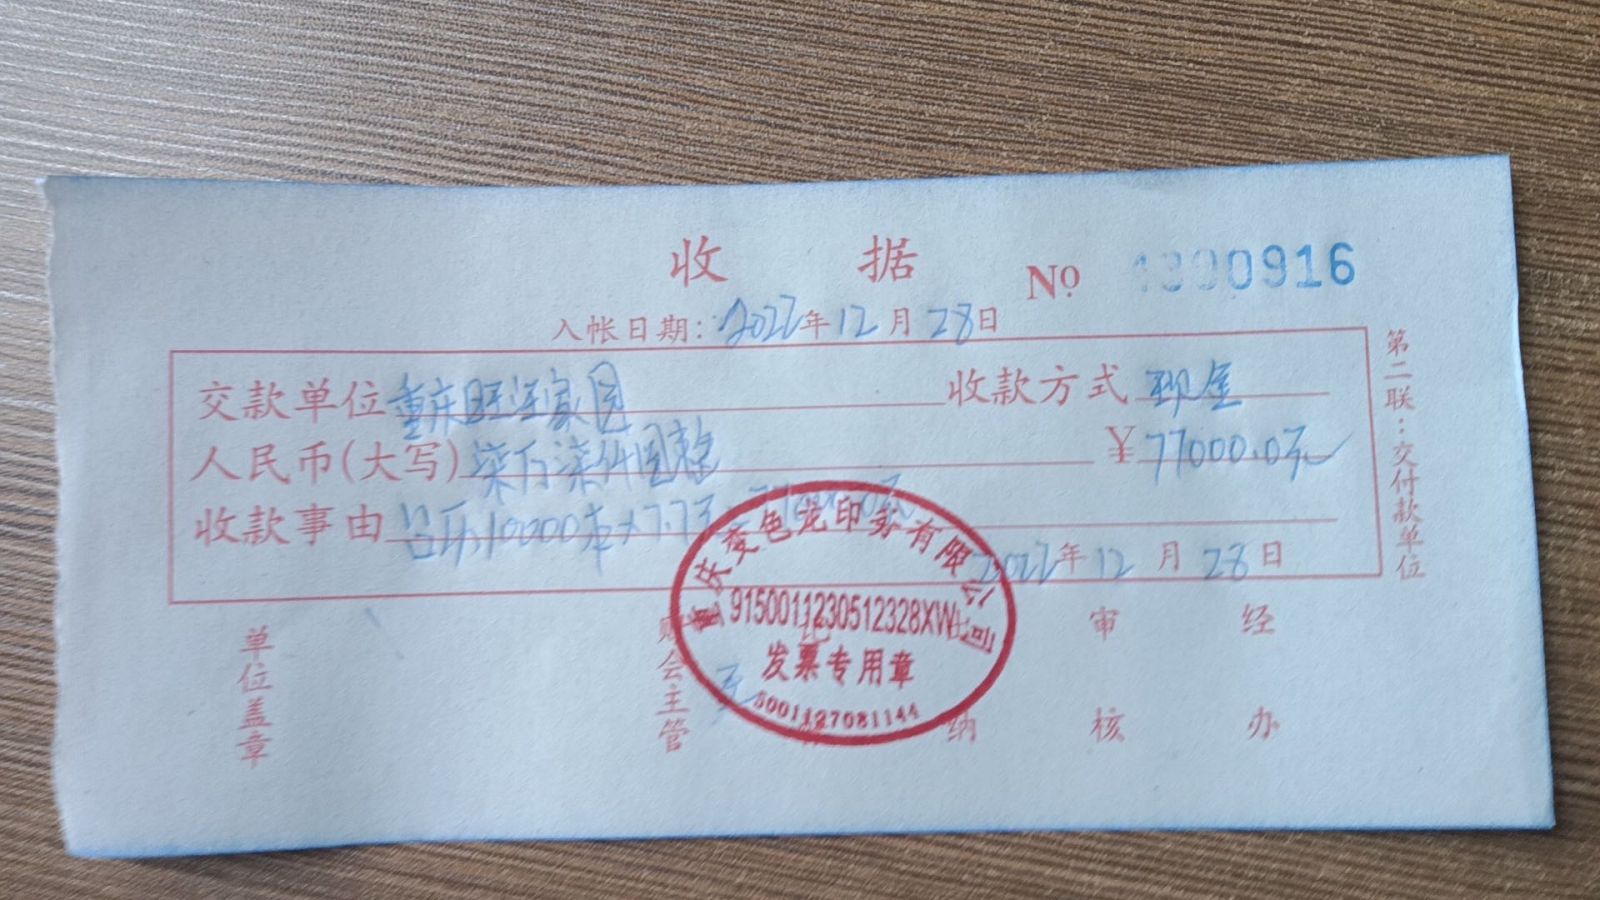 收 据 Nº 1390916
入帐日期：2022年12月28日
第二联：交付款单位
交款单位 重庆旺汪家园 收款方式 现金
人民币(大写) 柒万柒仟圆整 ¥ 77000.0元
收款事由 台历10000本×7.7元 77000.0元
2022年12月28日
重庆变色龙印务有限公司
9150011230512328XW
发票专用章
5001127081144
单位盖章 财会主管 记 出纳 审核 经办